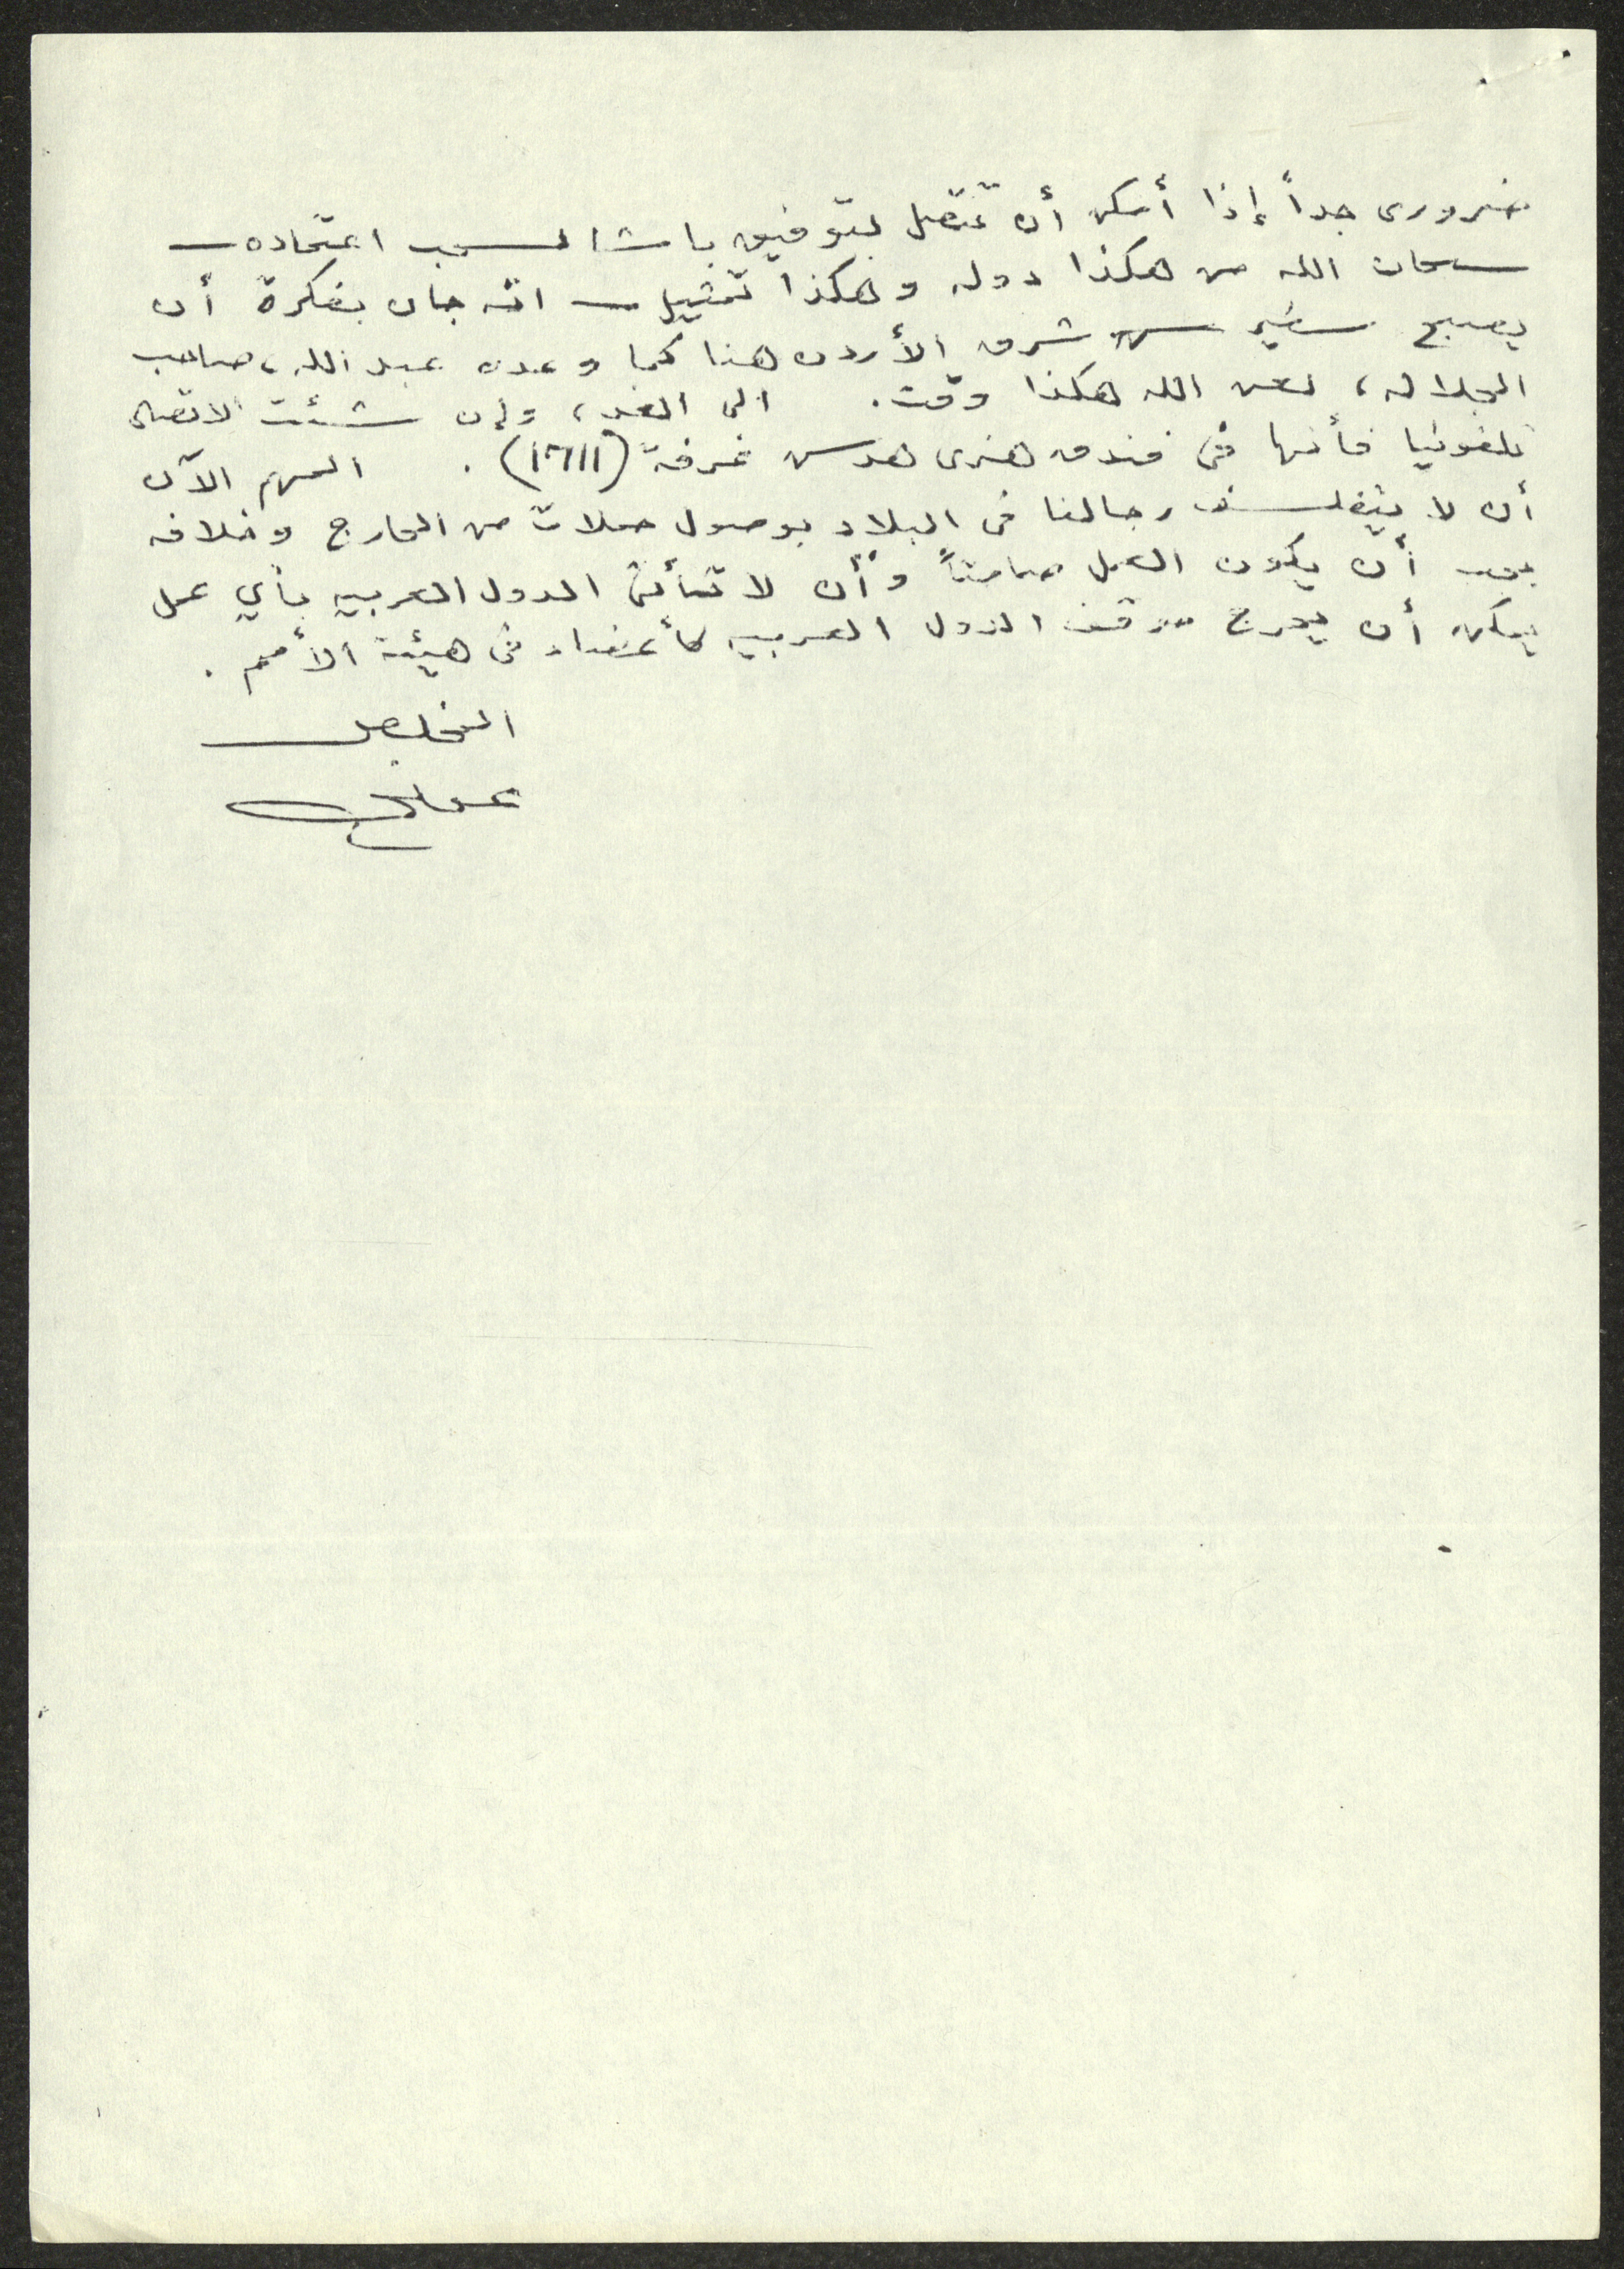 ضرورى جداً إذا أمكن أن تتصل بتوفيق باشا لسحب اعتماده –
سبحان الله من هكذا دوله وهكذا تمثيل – انه جاء بفكرة أن
يصبح سفير شرق الأردن هنا كما وعده عبد الله، صاحب
الجلاله، لعن الله هكذا وقت. الى الغد، وإن شئت الاتصال
تلفونيا فأنها فى فندق هنرى هدسن غرفة (1711). المهم الآن
أن لا يتفلسف رجالنا فى البلاد بوصول حملات من الخارج وخلافه
يجب أن يكون العمل صامتاً وأن لا تأتى الدول العربيه بأي عمل
يمكن أن يحرج موقف الدول العربيه كأعضاء فى هيئة الأمم.
المخلص